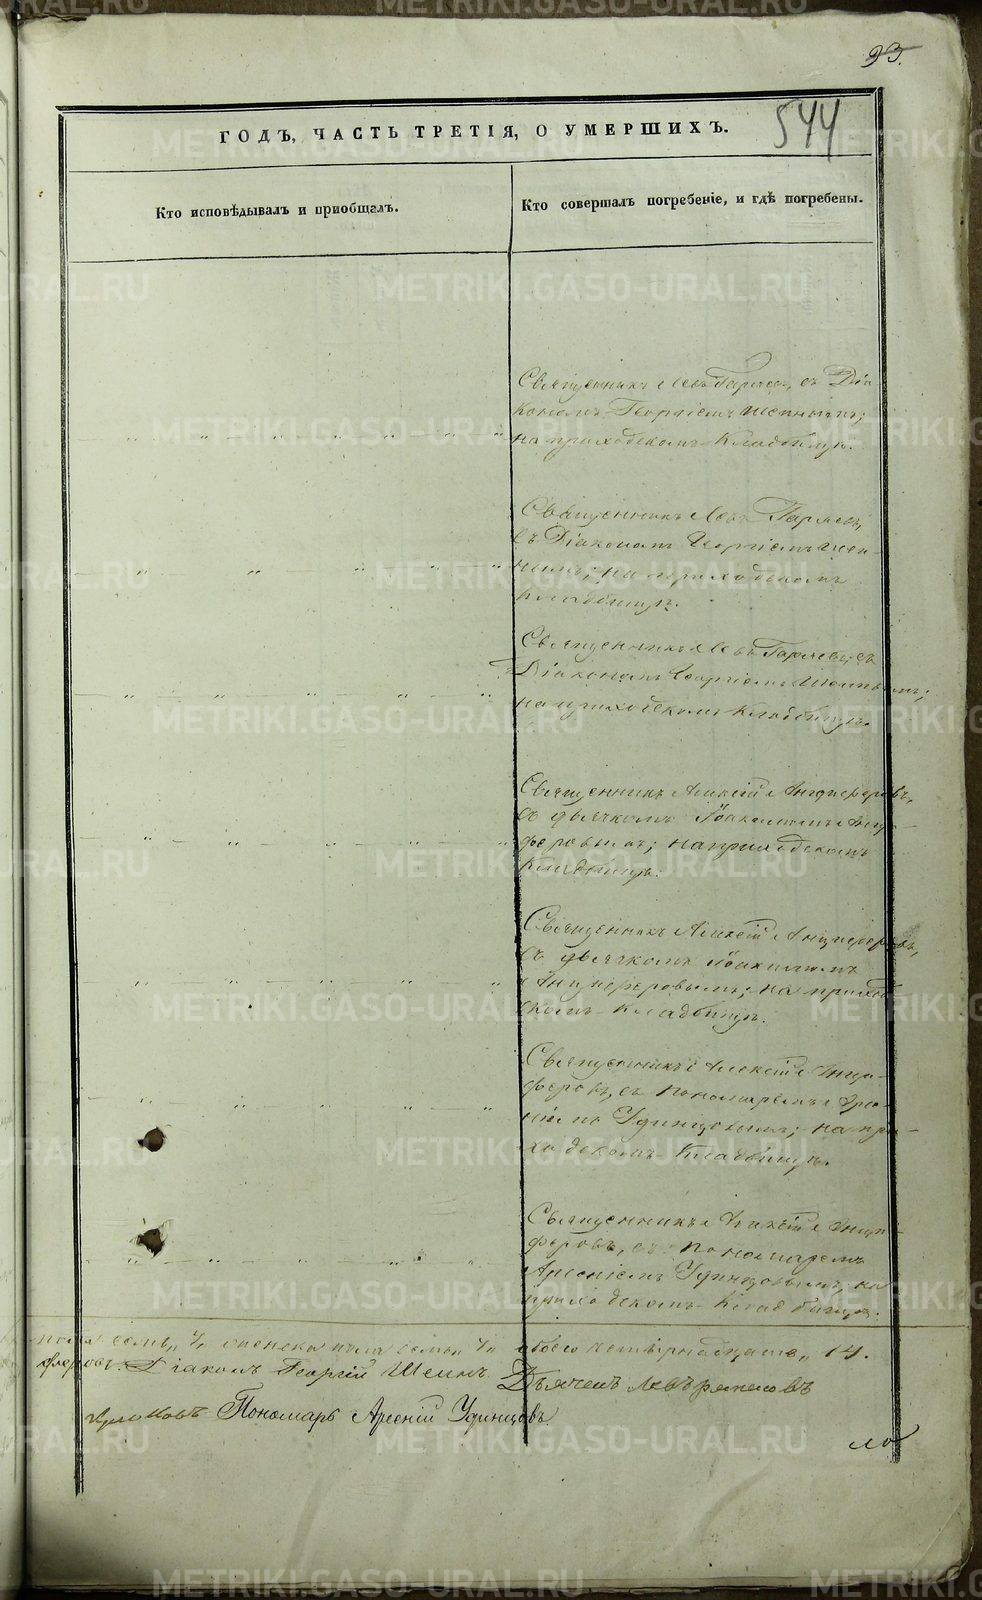 93.
544
ГОДЪ, ЧАСТЬ ТРЕТІЯ, О УМЕРШИХЪ.
Кто исповѣдывалъ и пріобщалъ.
Кто совершалъ погребеніе, и гдѣ погребены.
Священникъ Левъ Гаряевъ, съ Діа
кономъ Георгіемъ Шеинымъ;
на приходскомъ кладбищѣ.
Священникъ Левъ Гаряевъ,
съ Діакономъ Георгіемъ Шеи-
нымъ; на приходскомъ
кладбищѣ.
Священникъ Левъ Гаряевъ, съ
Діакономъ Георгіемъ Шеинымъ;
на приходскомъ кладбищѣ.
Священникъ Алексій Анциферовъ,
съ дьячкомъ Анци-
феровымъ; на приходскомъ
кладбищѣ.
Священникъ Алексій Анциферовъ,
съ дьячкомъ
Анциферовымъ; на приход
скомъ кладбищѣ.
Священникъ Алексій Анци-
феровъ, съ пономаремъ Арсе-
ніемъ Удинцовымъ; на при-
ходскомъ кладбищѣ.
Священникъ Алексій Анци-
феровъ, съ пономаремъ
Арсеніемъ Удинцовымъ, на
приходскомъ кладбищѣ.
пола семь, 7, женска пола семь, 7, обоего четырнадцать, 14.
феровъ. Діаконъ Георгій Шеинъ. Дьячекъ Левъ
Пономарь Арсеній Удинцовъ
METRIKI.GASO-URAL.RU